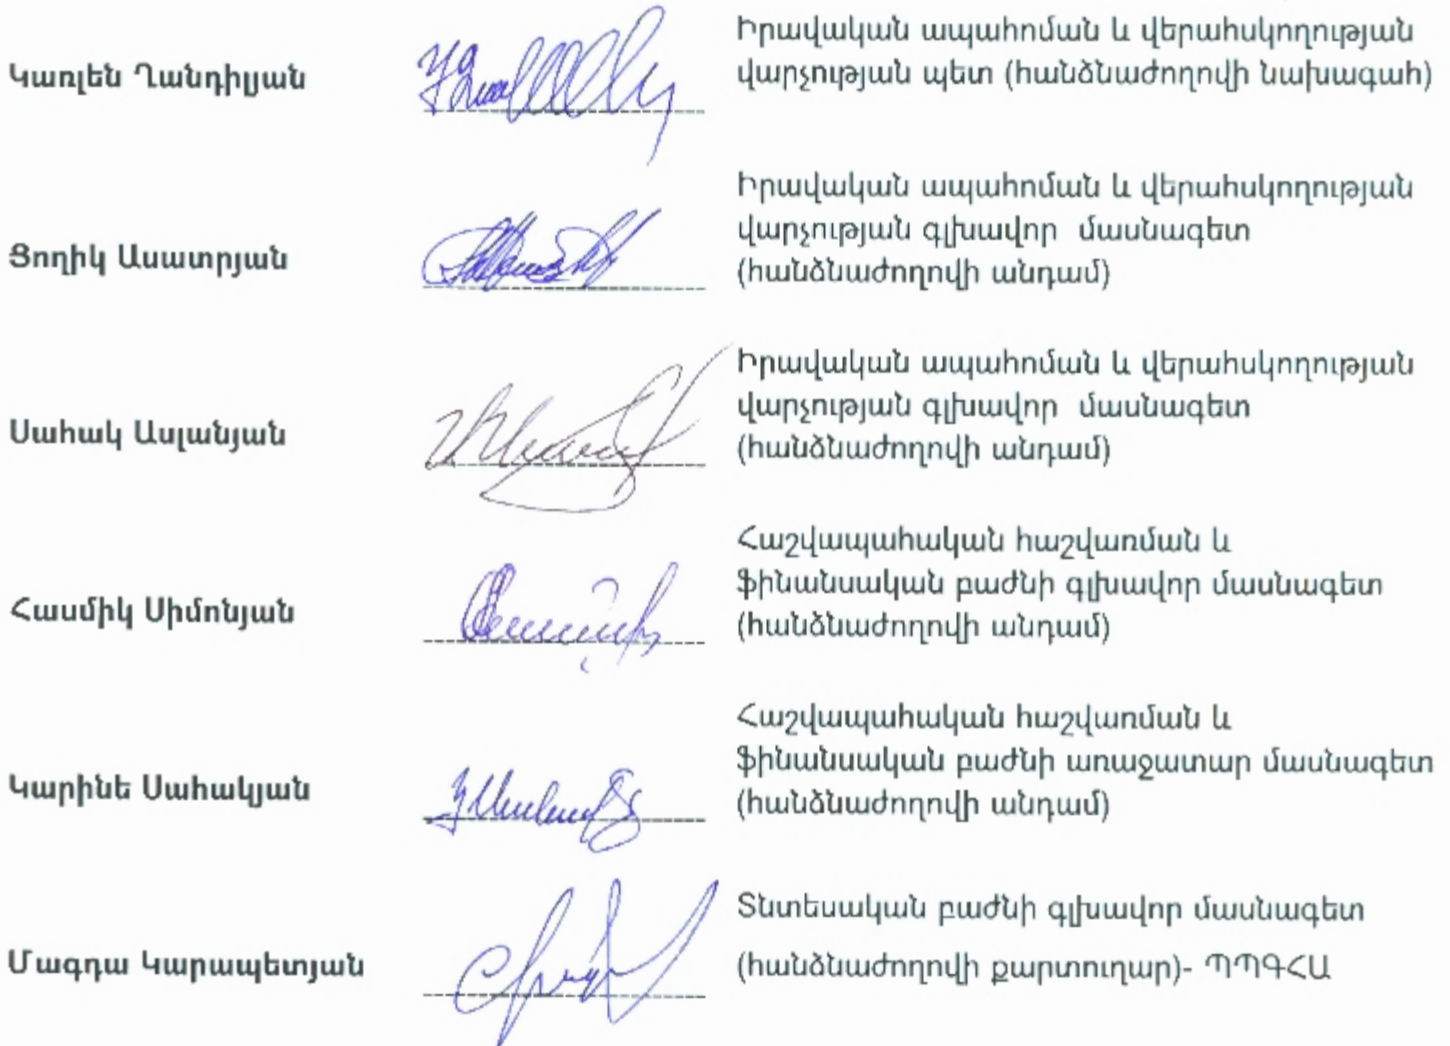 Կառլեն Ղանդիլյան
Իրավական ապահոման և վերահսկողության
վարչության պետ (հանձնաժողովի նախագահ)
Ցողիկ Ասատրյան
Իրավական ապահոման և վերահսկողության
վարչության գլխավոր մասնագետ
(հանձնաժողովի անդամ)
Սահակ Ասլանյան
Իրավական ապահոման և վերահսկողության
վարչության գլխավոր մասնագետ
(հանձնաժողովի անդամ)
Հասմիկ Սիմոնյան
Հաշվապահական հաշվառման և
ֆինանսական բաժնի գլխավոր մասնագետ
(հանձնաժողովի անդամ)
Կարինե Սահակյան
Հաշվապահական հաշվառման և
ֆինանսական բաժնի առաջատար մասնագետ
(հանձնաժողովի անդամ)
Մագդա Կարապետյան
Տնտեսական բաժնի գլխավոր մասնագետ
(հանձնաժողովի քարտուղար)- ՊՊԳՀԱ